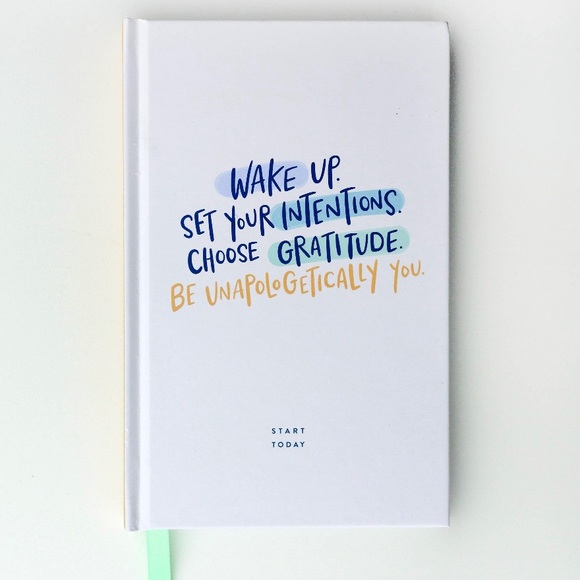 WAKE UP.
SET YOUR INTENTIONS.
CHOOSE GRATITUDE.
BE UNAPOLOGETICALLY YOU.
START
TODAY